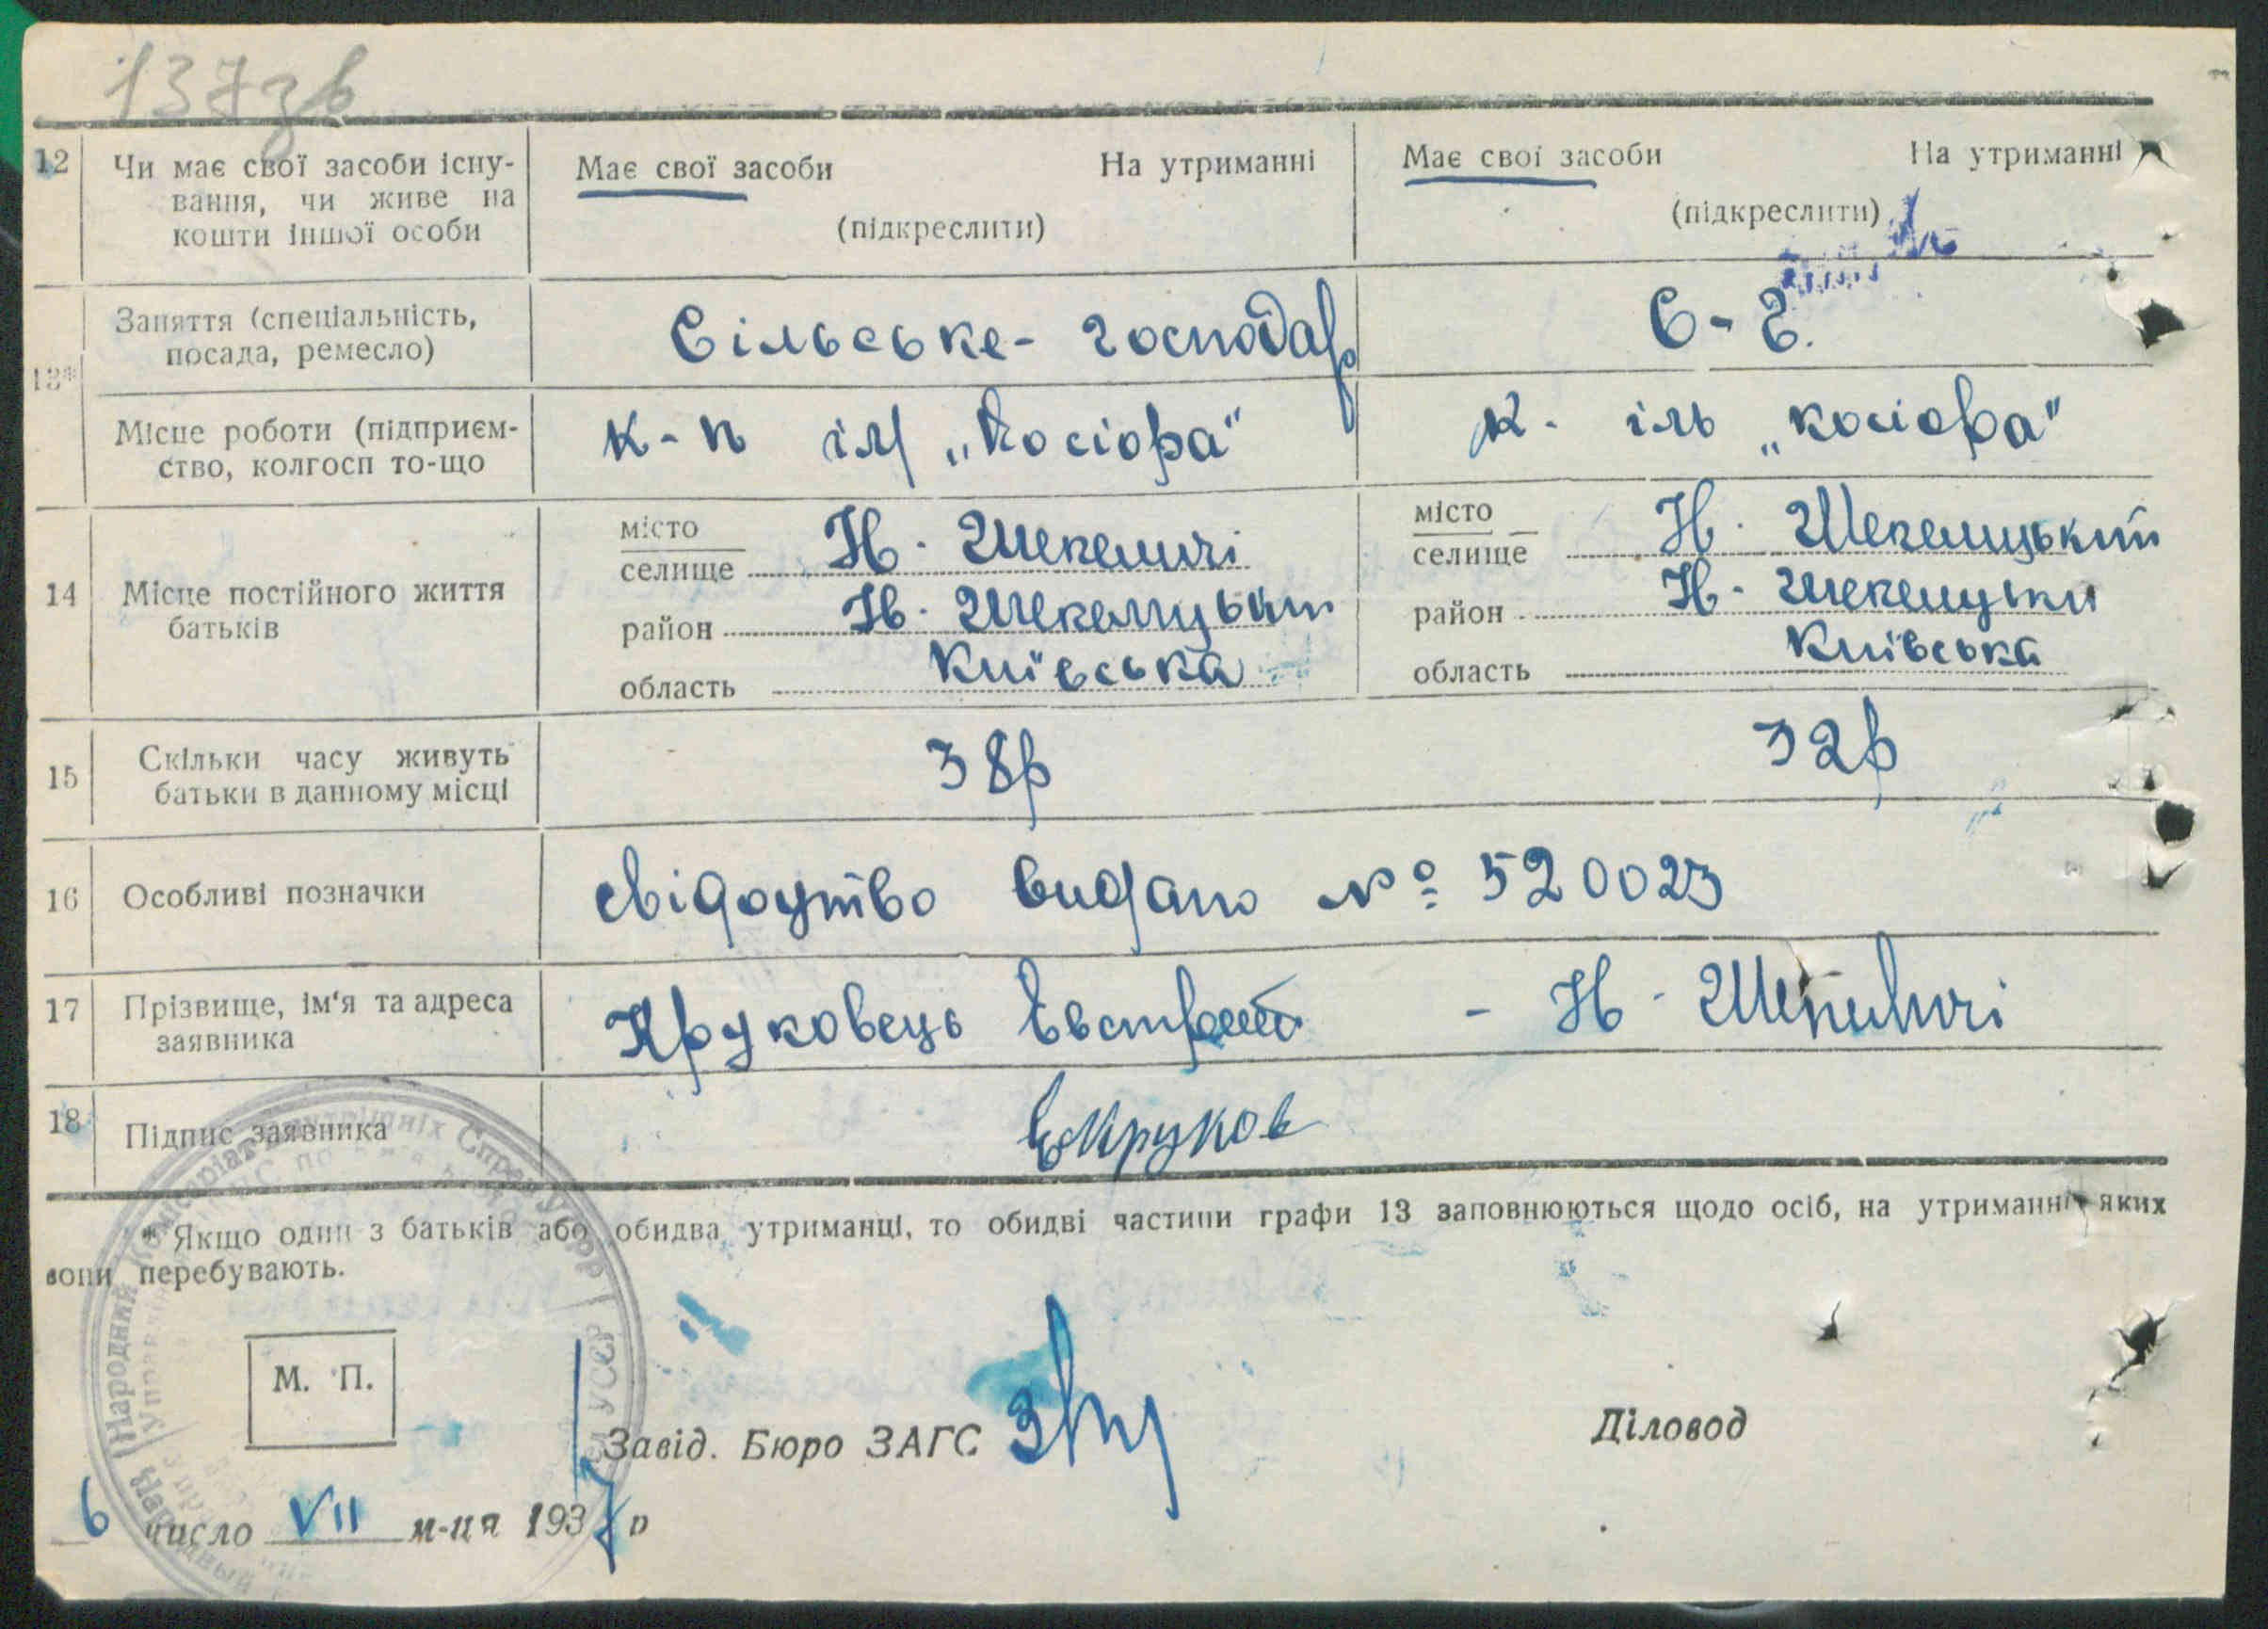 137зв
12 Чи має свої засоби існу-
вання, чи живе на
кошти іншої особи
Має свої засоби На утриманні
(підкреслити)
Має свої засоби На утриманні
(підкреслити)
13*
Заняття (спеціальність,
посада, ремесло)
Сільське-господар
С-г.
Місце роботи (підприєм-
ство, колгосп то-що
к-п ім „Косіора"
к. ім „косіора"
14 Місце постійного життя
батьків
місто
селище Н. Шепеличі
район Н. Шепелицький
область Київська
місто
селище Н. Шепелицький
район Н. Шепелицьки
область Київська
15 Скільки часу живуть
батьки в данному місці
38р
32р
16 Особливі позначки
свідоцтво видано № 520023
17 Прізвище, ім'я та адреса
заявника
Круковець Евстрат - Н. Шепеличі
18 Підпис заявника
ЕКруков
* Якщо один з батьків або обидва утриманці, то обидві частини графи 13 заповнюються щодо осіб, на утриманні яких
вони перебувають.
М. П.
Завід. Бюро ЗАГС
Діловод
6 число VII м-ця 1937 р
Народний Комісаріат Внутрішніх Справ УСРР